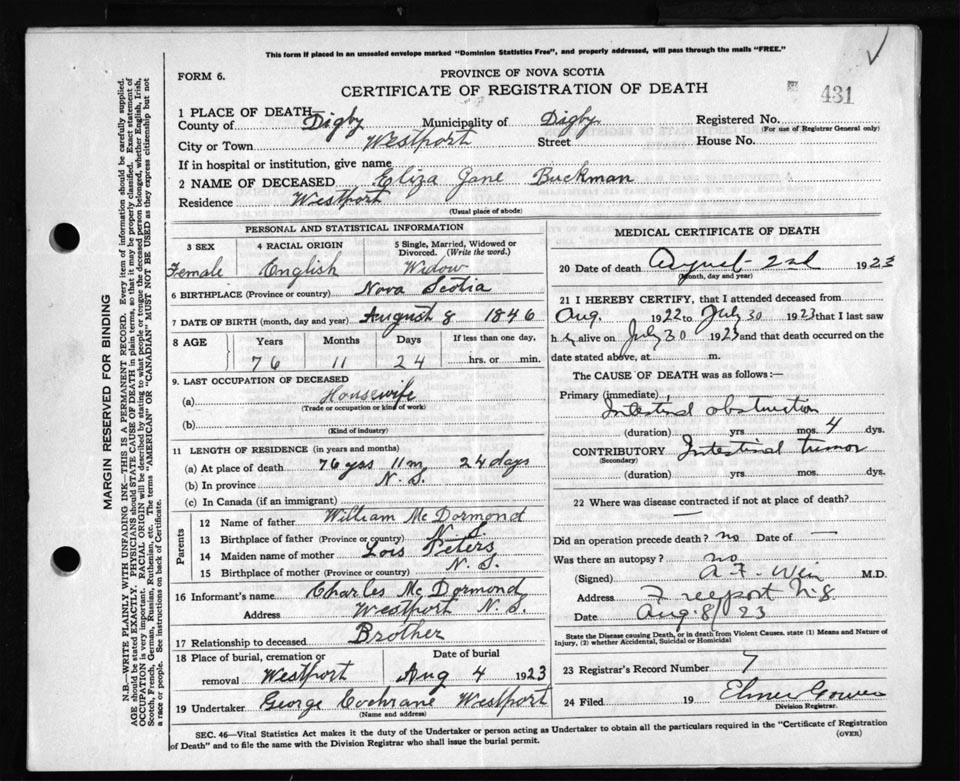 This form if placed in an unsealed envelope marked "Dominion Statistics Free", and properly addressed, will pass through the mails "FREE."
FORM 6.
PROVINCE OF NOVA SCOTIA
CERTIFICATE OF REGISTRATION OF DEATH
431
1 PLACE OF DEATH
County of Digby Municipality of Digby Registered No.
(For use of Registrar General only)
City or Town Westport Street House No.
If in hospital or institution, give name
2 NAME OF DECEASED Eliza Jane Buckman
Residence Westport
(Usual place of abode)
PERSONAL AND STATISTICAL INFORMATION
3 SEX 4 RACIAL ORIGIN 5 Single, Married, Widowed or Divorced. (Write the word.)
Female English Widow
6 BIRTHPLACE (Province or country) Nova Scotia
7 DATE OF BIRTH (month, day and year) August 8 1846
8 AGE Years Months Days If less than one day,
76 11 24 hrs. or min.
9. LAST OCCUPATION OF DECEASED
(a) Housewife
(Trade or occupation or kind of work)
(b)
(Kind of industry)
11 LENGTH OF RESIDENCE (in years and months)
(a) At place of death 76 yrs 11 m 24 days
(b) In province N. S.
(c) In Canada (if an immigrant)
Parents
12 Name of father William McDormond
13 Birthplace of father (Province or country) N. S.
14 Maiden name of mother Lois Peters
15 Birthplace of mother (Province or country) N. S.
16 Informant's name Charles McDormond
Address Westport N. S.
17 Relationship to deceased Brother
18 Place of burial, cremation or removal Westport Date of burial Aug 4 1923
19 Undertaker George Cochrane Westport
(Name and address)
MEDICAL CERTIFICATE OF DEATH
20 Date of death August 2nd 1923
(Month, day and year)
21 I HEREBY CERTIFY, that I attended deceased from
Aug. 1922 to July 30 1923 that I last saw
h er alive on July 30 1923 and that death occurred on the
date stated above, at m.
The CAUSE OF DEATH was as follows:—
Primary (immediate)
Intestinal obstruction
(duration) yrs mos. 4 dys.
CONTRIBUTORY Intestinal tumor
(Secondary)
(duration) yrs. mos. dys.
22 Where was disease contracted if not at place of death?
—
Did an operation precede death? no Date of —
Was there an autopsy? no
(Signed) A. F. Weir M.D.
Address Freeport N.S
Date Aug. 8/23
State the Disease causing Death, or in death from Violent Causes, state (1) Means and Nature of Injury, (2) whether Accidental, Suicidal or Homicidal
23 Registrar's Record Number 7
24 Filed 19 Elmer Gower
Division Registrar.
SEC. 46—Vital Statistics Act makes it the duty of the Undertaker or person acting as Undertaker to obtain all the particulars required in the "Certificate of Registration
of Death" and to file the same with the Division Registrar who shall issue the burial permit.
(OVER)
MARGIN RESERVED FOR BINDING
N.B.—WRITE PLAINLY WITH UNFADING INK—THIS IS A PERMANENT RECORD. Every item of information should be carefully supplied.
AGE should be stated EXACTLY. PHYSICIANS should STATE CAUSE OF DEATH in plain terms, so that it may be properly classified. Exact statement of
OCCUPATION is very important. RACIAL ORIGIN will be described by stating to what people or tongue the deceased person belonged, whether English, Irish,
Scotch, French, German, Russian, Ruthenian, etc. The terms "AMERICAN" OR "CANADIAN" MUST NOT BE USED as they express citizenship but not
a race or people. See instructions on back of Certificate.